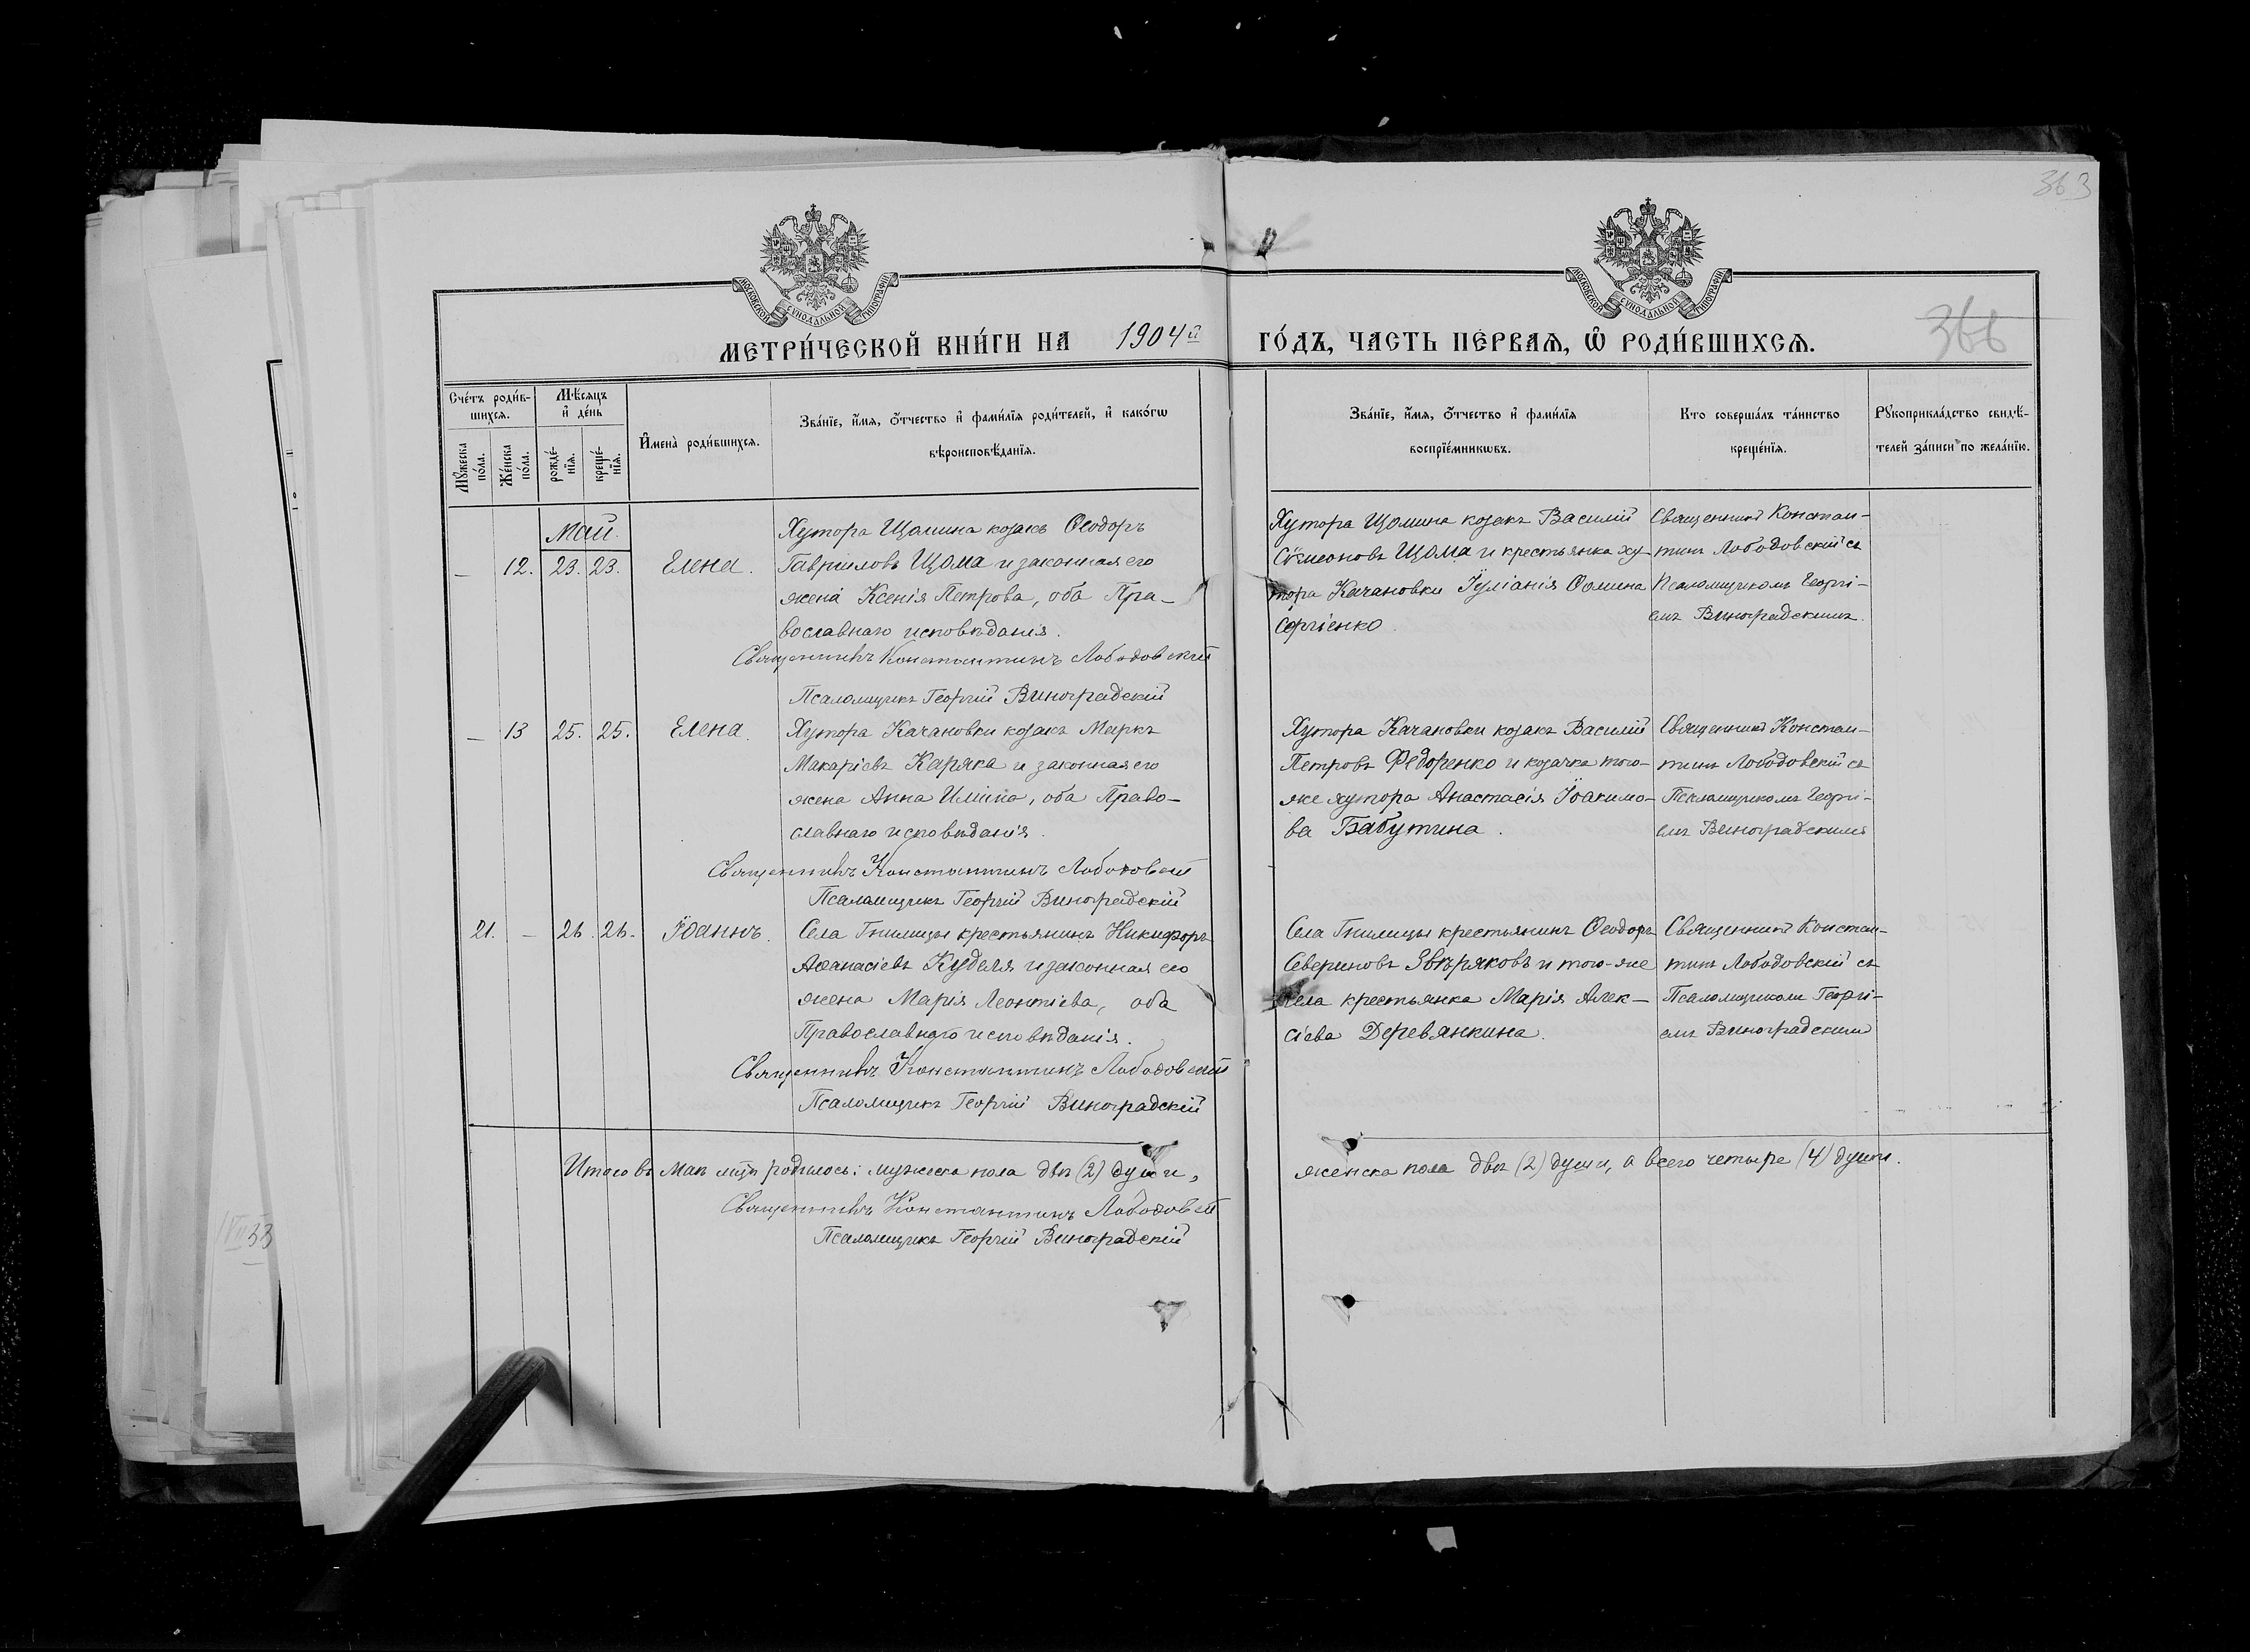 363
МОСКОВСКОЙ СУНОДАЛЬНОЙ ТИПОГРАФІИ
МОСКОВСКОЙ СУНОДАЛЬНОЙ ТИПОГРАФІИ
366
МЕТРИ́ЧЕСКОЙ КНИ́ГИ НА 1904й ГО́ДЪ, ЧАСТЬ ПЕ́РВАѦ, Ѡ҆ РОДИ́ВШИХСѦ.
Сче́тъ роди́в-
шихсѧ.
Мꙋ́жеска
по́ла.
Же́нска
по́ла.
Мѣ́сѧцъ
и҆ де́нь
рожде́-
нїѧ.
креще́-
нїѧ.
И҆мена̀ роди́вшихсѧ.
Зва́нїе, и҆́мѧ, ѻ҆́тчество и҆ фами́лїѧ роди́телей, и҆ како́гѡ
вѣроисповѣ́данїѧ.
Зва́нїе, и҆́мѧ, ѻ҆́тчество и҆ фами́лїѧ
воспрїе́мникѡвъ.
Кто соверша́лъ та́инство
креще́нїѧ.
Рꙋкоприкла́дство свидѣ́-
телей за́писи по жела́нїю.
Май.
— 12. 23. 23. Елена.
Хутора Щомина козакъ Ѳеодоръ
Гавриловъ Щома и законная его
жена Ксенія Петрова, оба Пра-
вославнаго исповѣданія.
Священникъ Константинъ Лободовскій
Псаломщикъ Георгій Виноградскій
Хутора Щомина козакъ Василій
Сѵмеоновъ Щома и крестьянка ху-
тора Качановки Іуліанія Ѳомина
Сергіенко
Священникъ Констан-
тинъ Лободовскій съ
Псаломщикомъ Георгі-
емъ Виноградскимъ.
— 13 25. 25. Елена.
Хутора Качановки козакъ Маркъ
Макаріевъ Каряка и законная его
жена Анна Иліина, оба Право-
славнаго исповѣданія.
Священникъ Константинъ Лободовскій
Псаломщикъ Георгій Виноградскій
Хутора Качановки козакъ Василій
Петровъ Федоренко и козачка того-
же хутора Анастасія Іоакимо-
ва Бабутина.
Священникъ Констан-
тинъ Лободовскій съ
Псаломщикомъ Георгі-
емъ Виноградскимъ
21. — 26. 26. Іоаннъ.
Села Гнилицы крестьянинъ Никифоръ
Аѳанасіевъ Куделя и законная его
жена Марія Леонтіева, оба
Православнаго исповѣданія.
Священникъ Константинъ Лободовскій
Псаломщикъ Георгій Виноградскій
Села Гнилицы крестьянинъ Ѳеодоръ
Севериновъ Звѣряковъ и того-же
села крестьянка Марія Алек-
сіева Деревянкина.
Священникъ Констан-
тинъ Лободовскій съ
Псаломщикомъ Георгі-
емъ Виноградскимъ
Итого въ Маѣ мцѣ родилось: мужеска пола двѣ (2) души, женска пола двѣ (2) души, а всего четыре (4) души.
Священникъ Константинъ Лободовскій
Псаломщикъ Георгій Виноградскій